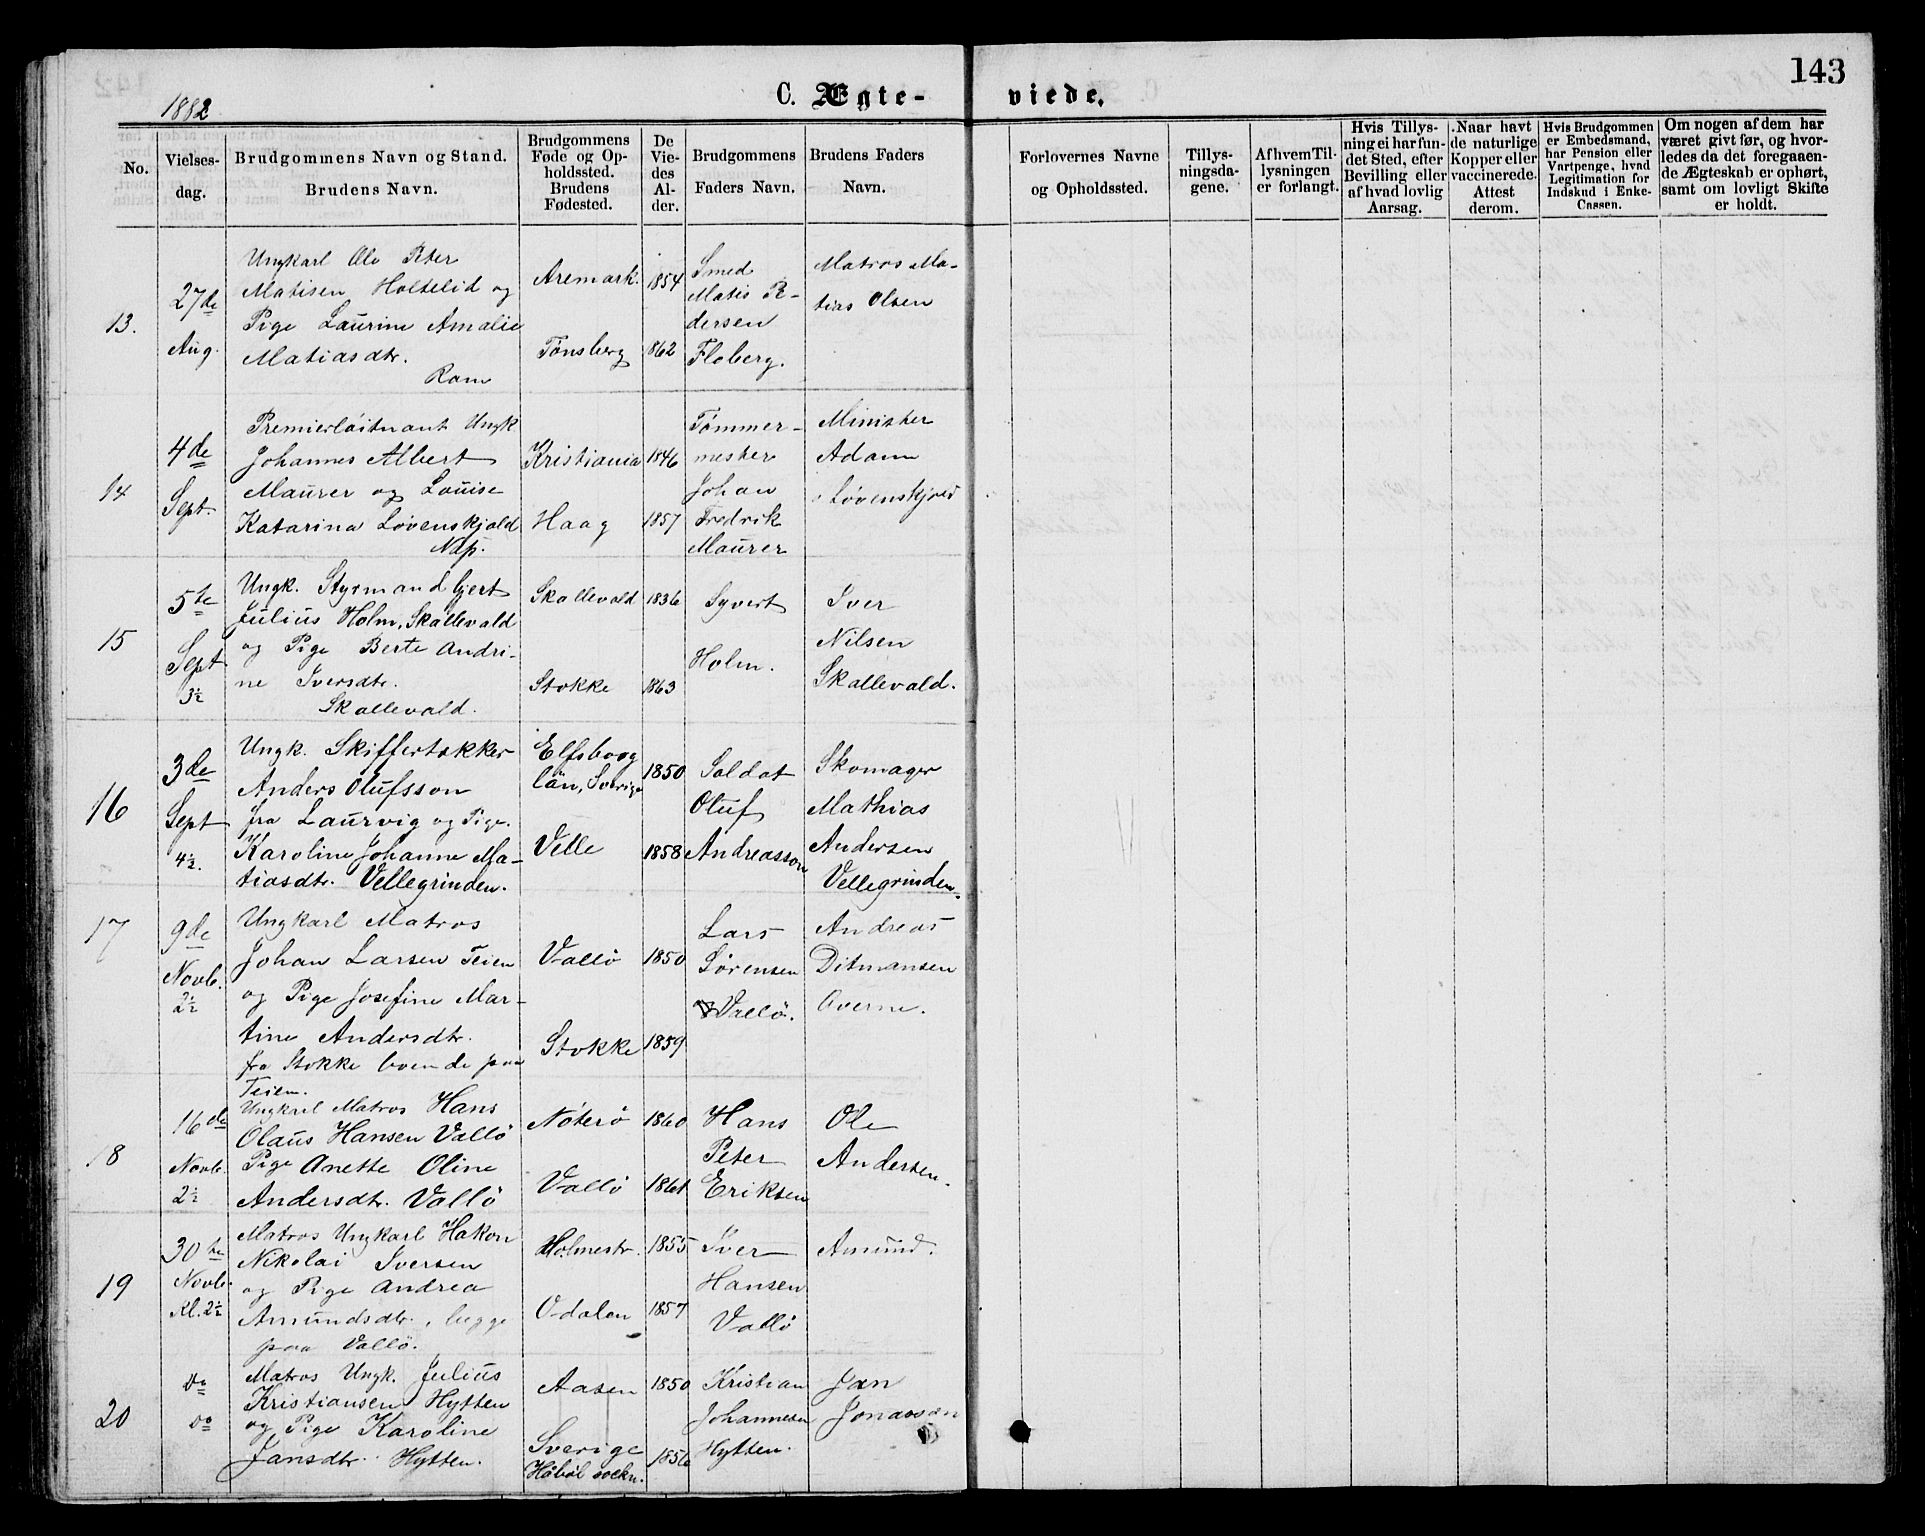 143
1882
C. Ægte-
viede.
No.
Vielses-
dag.
Brudgommens Navn og Stand.
Brudens Navn.
Brudgommens
Føde og Op-
holdssted.
Brudens
Fødested.
De
Vie-
des
Al-
der.
Brudgommens
Faders Navn.
Brudens Faders
Navn.
Forlovernes Navne
og Opholdssted.
Tillys-
ningsda-
gene.
Af hvem Til-
lysningen
er forlangt.
Hvis Tillys-
ning ei har fun-
det Sted, efter
Bevilling eller
af hvad lovlig
Aarsag.
Naar havt
de naturlige
Kopper eller
vaccinerede.
Attest
derom.
Hvis Brudgommen
er Embedsmand,
har Pension eller
Vartpenge, hvad
Legitimation for
Indskud i Enke-
Cassen.
Om nogen af dem har
været givt før, og hvor-
ledes da det foregaaen-
de Ægteskab er ophørt,
samt om lovligt Skifte
er holdt.
13.
27de
Aug.
Ungkarl Ole Peter
Matisen Holtelid og
Pige Laurine Amalie
Matiasdtr.
Ram
Aremark.
Tønsberg
1854
1862
Smed
Matis Pe-
dersen
Floberg.
Matros Ma-
tias Olsen
14
4de
Sept.
Premierløitnant Ungk.
Johannes Albert
Maurer og Louise
Katarina Løvenskjold
Nap.
Kristiania
Haag
1846
1857
Tømmer-
mester
Johan
Fredrik
Maurer
Minister
Adam
Løvenskjold
15
5te
Sept
3½
Ungk. Styrmand Gjert
Julius Holm, Skallevald
og Pige Berte Andri-
ne Iversdtr.
Skallevald.
Skallevald
Stokke
1836
1863
Syvert
Holm.
Iver
Nilsen
Skallevald.
16
3de
Sept
4½.
Ungk. Skiffertækker
Anders Olufsson
fra Laurvig og Pige
Karoline Johanne Ma-
tiasdtr. Vellegrinden.
Elfsborg
län, Sverige
Velle
1850
1858
Soldat
Oluf
Andreasson
Skomager
Mathias
Andersen
Vellegrinden.
17
9de
Novb.
2½
Ungkarl Matros
Johan Larsen Teien
og Pige Josefine Mar-
tine Andersdtr.
fra Stokke boende paa
Teien.
Vallö
Stokke
1850
1859
Lars
Sörensen
Vallö.
Andreas
Ditmansen
Gverne.
18
16de
Novb.
2½
Ungkarl Matros Hans
Olaus Hansen Vallö
Pige Anette Oline
Andersdtr. Vallö
Nöterö
Vallö
1860
1861
Hans
Peter
Eriksen
Ole
Andersen.
19
30te
Novb.
Kl. 2½
Matros Ungkarl Hakon
Nikolai Iversen
og Pige Andrea
Amundsdtr., begge
paa Vallö.
Holmestr.
Odalen
1855
1857
Iver
Hansen
Vallö
Amund.
20
do
do
Matros Ungk. Julius
Kristiansen Hytten
og Pige Karoline
Jansdtr. Hytten.
Aasen
Sverige
Håböl sockn.
1850
1856
Kristian
Johannesen
Hytten.
Jan
Jonasson